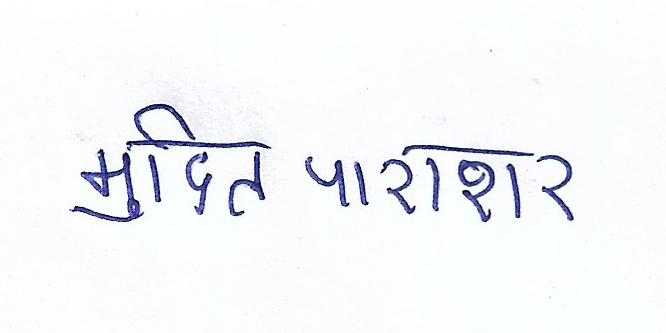 मुदित पाराशर